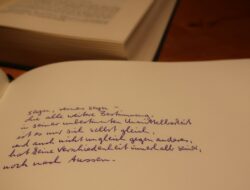 Seyn, reines Seyn –
ohne alle weitere Bestimmung.
in seiner unbestimmten Unmittelbarkeit
ist es nur sich selbst gleich,
und auch nicht ungleich gegen anderes,
hat keine Verschiedenheit innerhalb seiner,
noch nach Aussen.